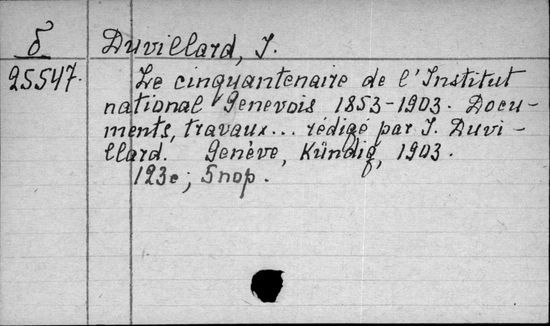 δ Duvillard, J.
25547. Le cinquantenaire de l'Institut
national Genevois 1853-1903. Docu-
ments, travaux... rédigé par J. Duvi-
llard. Genève, Kündig, 1903.
123c; 5 пор.